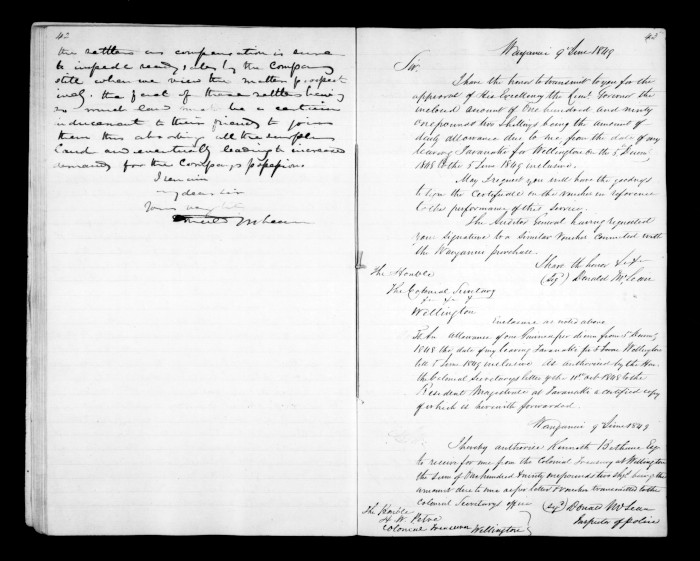 42
the settlers as compensation is sure
to impede ready sales by the Company
still when we view the matter prospect
ively. the fact of these settlers having
so much land must be a certain
inducement to their friends to join
them thus absorbing all the surplus
land and eventually leading to increased
demand for the Company's
I remain
my dear Sir
Yours very
Donald McLean
43
Wanganui 9 June 1849
Sir,
I have the honor to transmit to you for the
approval of His Excellency the Lieut. Governor the
inclosed account of One hundred and ninety
one pounds two shillings being the amount of
daily allowance due to me from the date of my
leaving Taranaki for Wellington on the 5 Decem.
1848 to the 5 June 1849 inclusive.
May I request you will have the goodness
to sign the Certificate on the voucher in reference
to the performance of this service.
The Auditor General having requested
your signature to a similar Voucher connected with
the Wanganui purchase.
I have the honor &c &c
(Sgd) Donald McLean
The Honble
The Colonial Secretary
&c &c &c
Wellington
Enclosure as noted above
To An allowance of one Pound per diem from 5 Decem.
1848 the date of my leaving Taranaki for Wellington
till 5 June 1849 inclusive as authorized by the Hon.
the Colonial Secretarys letter of the 11th Oct 1848 to the
Resident Magistrate at Taranaki a certified copy
of which is herewith forwarded.
Wanganui 9 June 1849
I hereby authorise Kenneth Bethune Esq
to receive for me from the Colonial Treasury at Wellington
the Sum of One hundred & ninety one pounds two Shgs. being the
amount due to me as per letter & Voucher transmitted to the
Colonial Secretarys office
(Sgd) Donald McLean
Inspector of police
The Honble
H. W. Petre
Colonial Treasurer Wellington